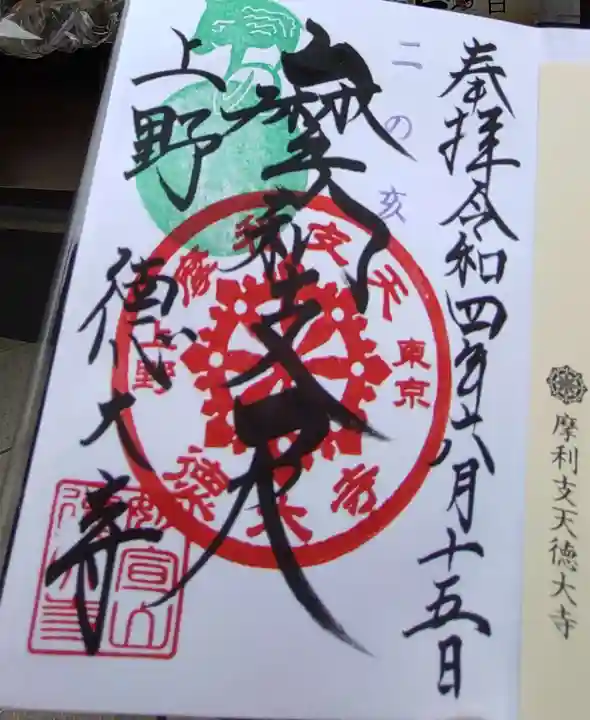 奉拝令和四年六月十五日
二の亥
摩利支天
上野
徳大寺
摩利支天
東京
上野
徳大寺
摩利支天徳大寺
日